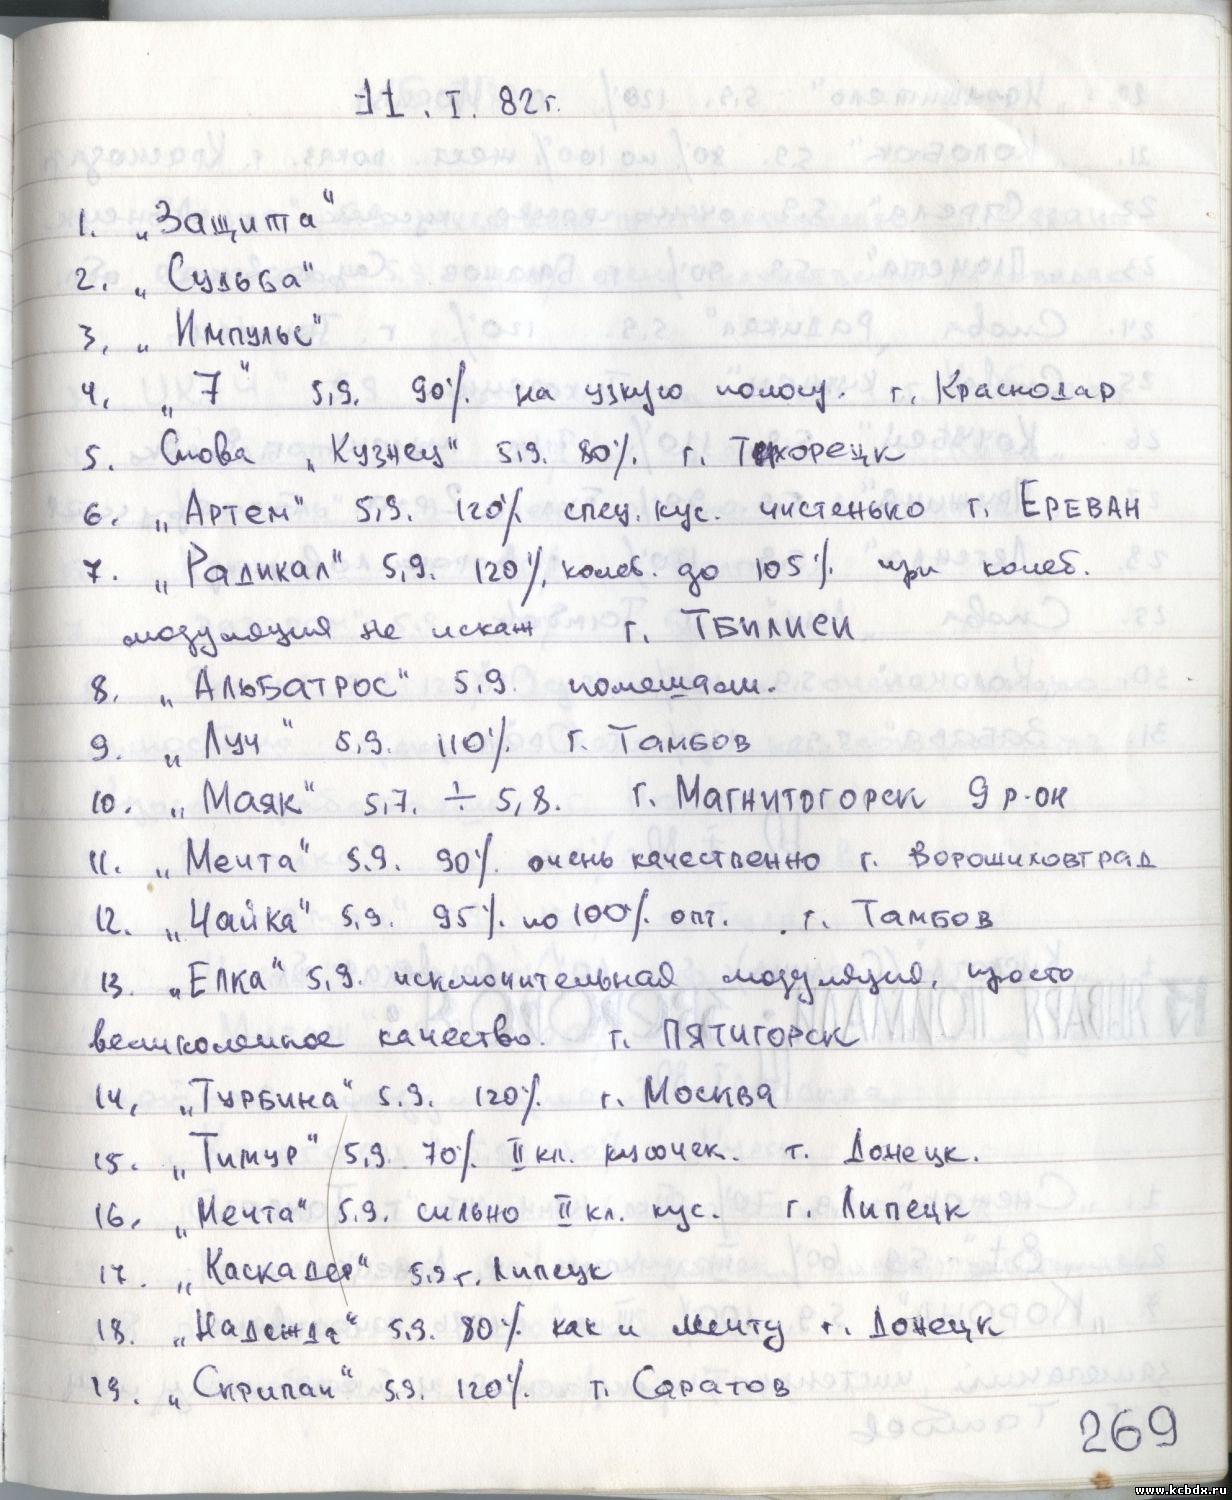 11. I. 82 г.
1. „Защита“
2. „Судьба“
3. „Импульс“
4. „7“ 5,9. 90% на узкую полосу. г. Краснодар
5. Снова „Кузнец“ 5,9. 80%. г. Тихорецк
6. „Артем“ 5,9. 120% спец. кус. чистенько г. ЕРЕВАН
7. „Радикал“ 5,9. 120%, колеб. до 105% при колеб.
модуляция не искаж г. ТБИЛИСИ
8. „Альбатрос“ 5,9. помешали.
9. „Луч“ 5,9. 110% г. Тамбов
10. „Маяк“ 5,7. ÷ 5,8. г. Магнитогорск 9 р-он
11. „Мечта“ 5.9. 90% очень качественно г. Ворошиловград
12. „Чайка“ 5,9. 95% по 100% опт. г. Тамбов
13. „Елка“ 5,9. исключительная модуляция, просто
великолепное качество. г. ПЯТИГОРСК
14. „Турбина“ 5.9. 120% г. Москва
15. „Тимур“ 5,9. 70% II кл. кусочек. г. Донецк.
16. „Мечта“ 5.9. сильно II кл. кус. г. Липецк
17. „Каскадер“ 5,9 г. Липецк
18. „Надежда“ 5.9. 80% как и Мечту г. Донецк
19. „Скрипач“ 5.9. 120% г. Саратов
269
www.kcbdx.ru